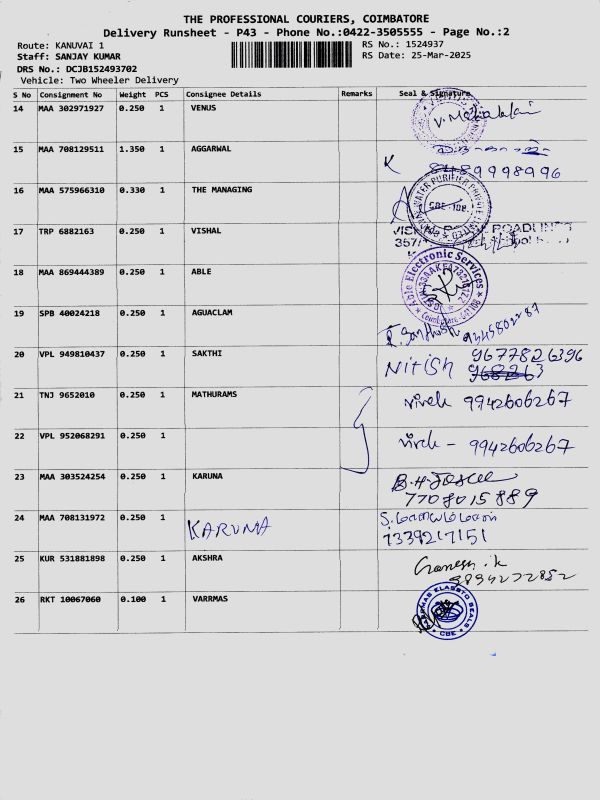 THE PROFESSIONAL COURIERS, COIMBATORE
Delivery Runsheet - P43 - Phone No.:0422-3505555 - Page No.:2
Route: KANUVAI 1
RS No.: 1524937
Staff: SANJAY KUMAR
RS Date: 25-Mar-2025
DRS No.: DCJB152493702
Vehicle: Two Wheeler Delivery
S No Consignment No Weight PCS Consignee Details Remarks Seal & Signature
14 MAA 302971927 0.250 1 VENUS
15 MAA 708129511 1.350 1 AGGARWAL
8489998996
16 MAA 575966310 0.330 1 THE MANAGING
WATER PURIFIER
CBE
17 TRP 6882163 0.250 1 VISHAL
ROADLINES
357/
18 MAA 869444389 0.250 1 ABLE
Able Electronic Services
19 SPB 40024218 0.250 1 AGUACLAM
9345802287
20 VPL 949810437 0.250 1 SAKTHI
Nitish 9677826396
21 TNJ 9652010 0.250 1 MATHURAMS
9942606267
22 VPL 952068291 0.250 1
9942606267
23 MAA 303524254 0.250 1 KARUNA
7708015889
24 MAA 708131972 0.250 1 KARUNA
7339217151
25 KUR 531881898 0.250 1 AKSHRA
Ganesh .k
9894272852
26 RKT 10067060 0.100 1 VARRMAS
CBE